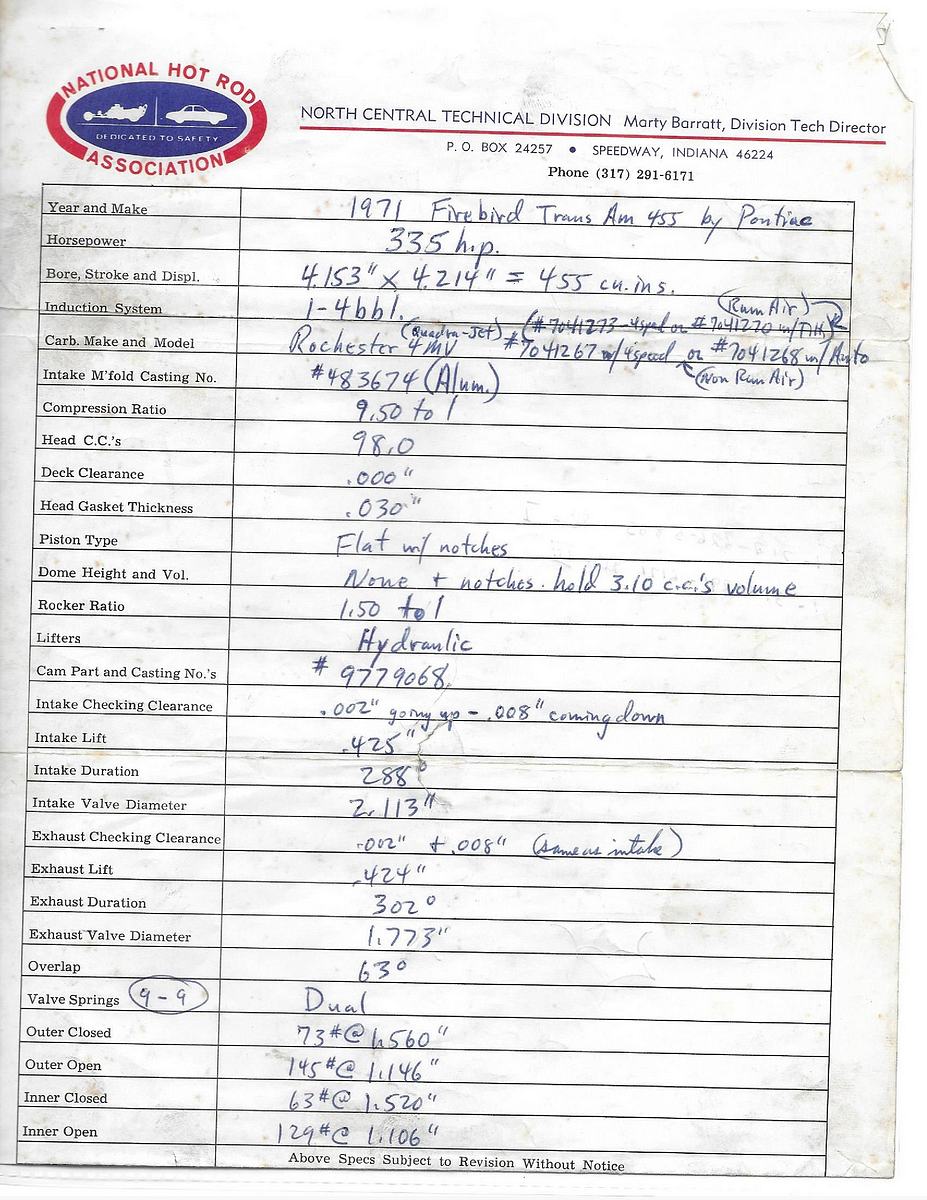 NATIONAL HOT ROD
DEDICATED TO SAFETY
ASSOCIATION
NORTH CENTRAL TECHNICAL DIVISION Marty Barratt, Division Tech Director
P. O. BOX 24257 • SPEEDWAY, INDIANA 46224
Phone (317) 291-6171
Year and Make 1971 Firebird Trans Am 455 by Pontiac
Horsepower 335 h.p.
Bore, Stroke and Displ. 4.153" x 4.214" = 455 cu.ins.
Induction System 1-4bbl. (Ram Air)
(#7041273-4speed or #7041270 w/T.H.)
Carb. Make and Model Rochester (Quadra-Jet) 4MV #7041267 w/4speed or #7041268 w/Auto
(Non Ram Air)
Intake M'fold Casting No. #483674 (Alum.)
Compression Ratio 9.50 to 1
Head C.C.'s 98.0
Deck Clearance .000"
Head Gasket Thickness .030"
Piston Type Flat w/ notches
Dome Height and Vol. None + notches hold 3.10 c.c.'s volume
Rocker Ratio 1.50 to 1
Lifters Hydraulic
Cam Part and Casting No.'s # 9779068
Intake Checking Clearance .002" going up - .008" coming down
Intake Lift .425"
Intake Duration 288°
Intake Valve Diameter 2.113"
Exhaust Checking Clearance .002" + .008" (same as intake)
Exhaust Lift .424"
Exhaust Duration 302°
Exhaust Valve Diameter 1.773"
Overlap 63°
Valve Springs 9-9 Dual
Outer Closed 73#@ 1.560"
Outer Open 145#@ 1.146"
Inner Closed 63#@ 1.520"
Inner Open 129#@ 1.106"
Above Specs Subject to Revision Without Notice